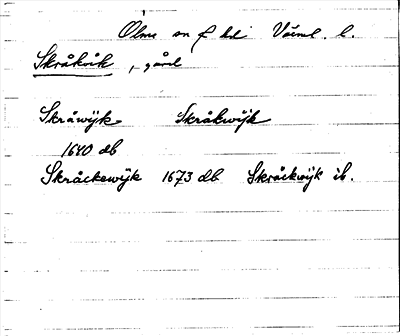 Olme sn o hd Värml. l.
Skråkvik, gård
Skråwijk Skråkwijk
1640 db
Skråckewijk 1673 db Skråckwijk ib.